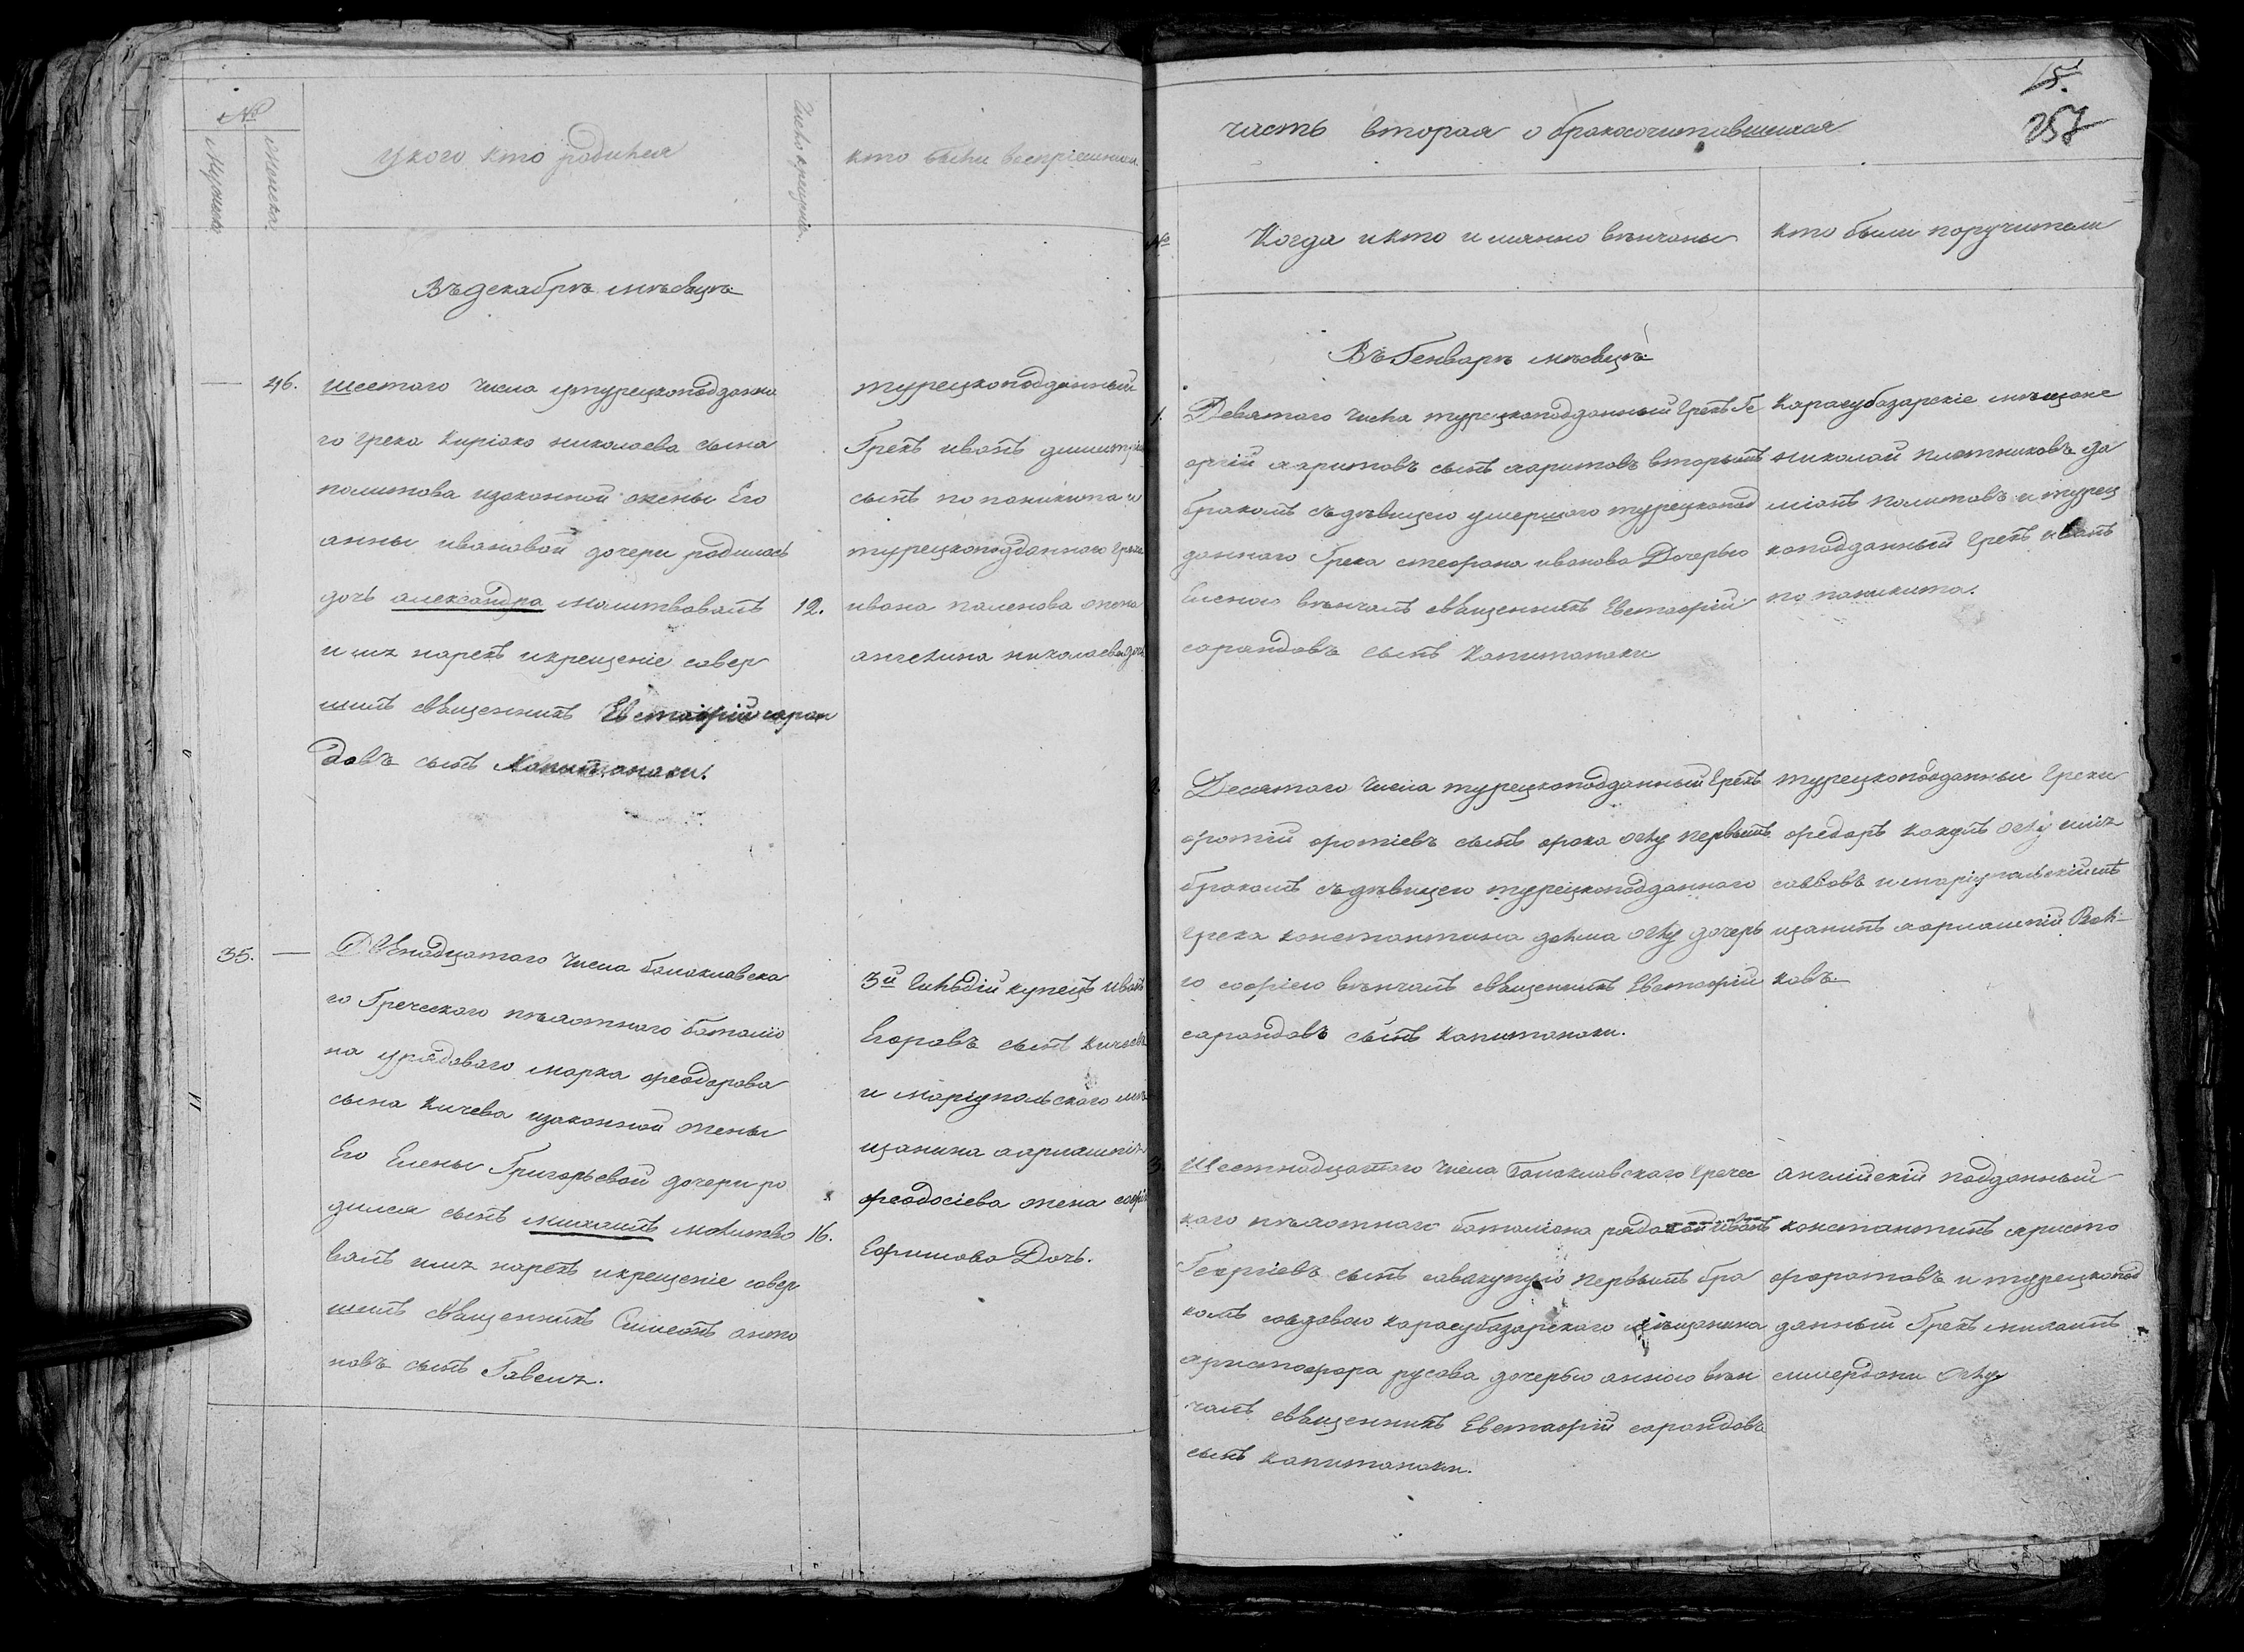 №
Мужеска
Женска
У кого кто родился
Число крещенія.
кто были воспріемники
Въ декабрѣ мѣсяцѣ
46.
шестаго числа у турецкоподданна
го грека Киріако николаева сына
политова изаконной жены Его
анны ивановой дочери родилась
дочь александра молитвовалъ
имя нарекъ икрещеніе совер
шилъ священникъ Евстафій саран
довъ сынъ Капитанаки.
12.
турецкоподданный
Грекъ иванъ
сынъ попаникита и
турецкоподданного грека
ивана жена
ангелина николаева дочь
35.
Двенадцатого числа балаклавска
го Греческого пѣхотного баталіо
на урядоваго марка феодорова
сына Кичева изаконной жены
Его Елены Григорьевой дочери ро
дился сынъ михаилъ молитво
валъ имя нарекъ икрещеніе совер
шилъ священникъ Симеонъ анто
новъ сынъ
16.
3й Гильдіи купецъ иванъ
Егоровъ сынъ
и маріупольского мѣ
щанина
феодосіева жена софія
Ефимова Дочь.
15.
257
часть вторая о бракосочитавшихся
№
Когда икто имянно вѣнчаны
кто были поручители
Въ Генварѣ мѣсяцѣ
1.
Девятого числа турецкоподданный Грекъ Ге
оргій харитовъ сынъ харитовъ вторымъ
бракомъ съдѣвицею умершого турецкопод
данного Грека стефана иванова Дочерью
Еленою вѣнчалъ священникъ Евстафій
сарандовъ сынъ Капитанаки
Карасубазарскіе мѣщане
николай плотниковъ да
міянъ политовъ и турец
коподданный Грекъ иванъ
попаникита.
2.
Десятого числа турецкоподданный Грекъ
фотій фотіевъ сынъ фока оглу первымъ
бракомъ съдѣвицею турецкоподданного
Грека константина оглу дочерь
ю софіею вѣнчалъ священникъ Евстафій
сарандовъ сынъ капитанаки.
турецкоподданныи Греки
федоръ оглу илія
саввовъ имаріупольскій мѣ
щанинъ
ковъ
3.
Шестнадцатого числа Балаклавского Гречес
кого пѣхотного баталіона рядовой иванъ
Георгіевъ сынъ первымъ бра
комъ совдовою карасубазарского мѣщанина
христофора русова дочерью анною вѣн
чалъ священникъ Евстафій сарандовъ
сынъ капитанаки.
англійскій подданный
константинъ христо
форатовъ и турецкопод
данный Грекъ михаилъ
оглу